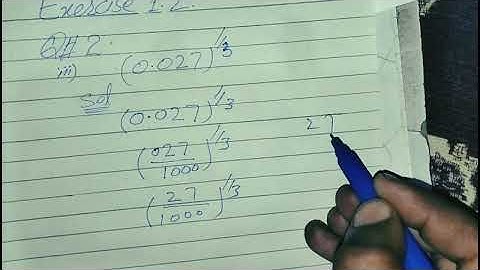 Exercise 1.2.
Q# 2.
iii) (0.027)^1/3
Sol (0.027)^1/3
(027/1000)^1/3
(27/1000)^1/3
27